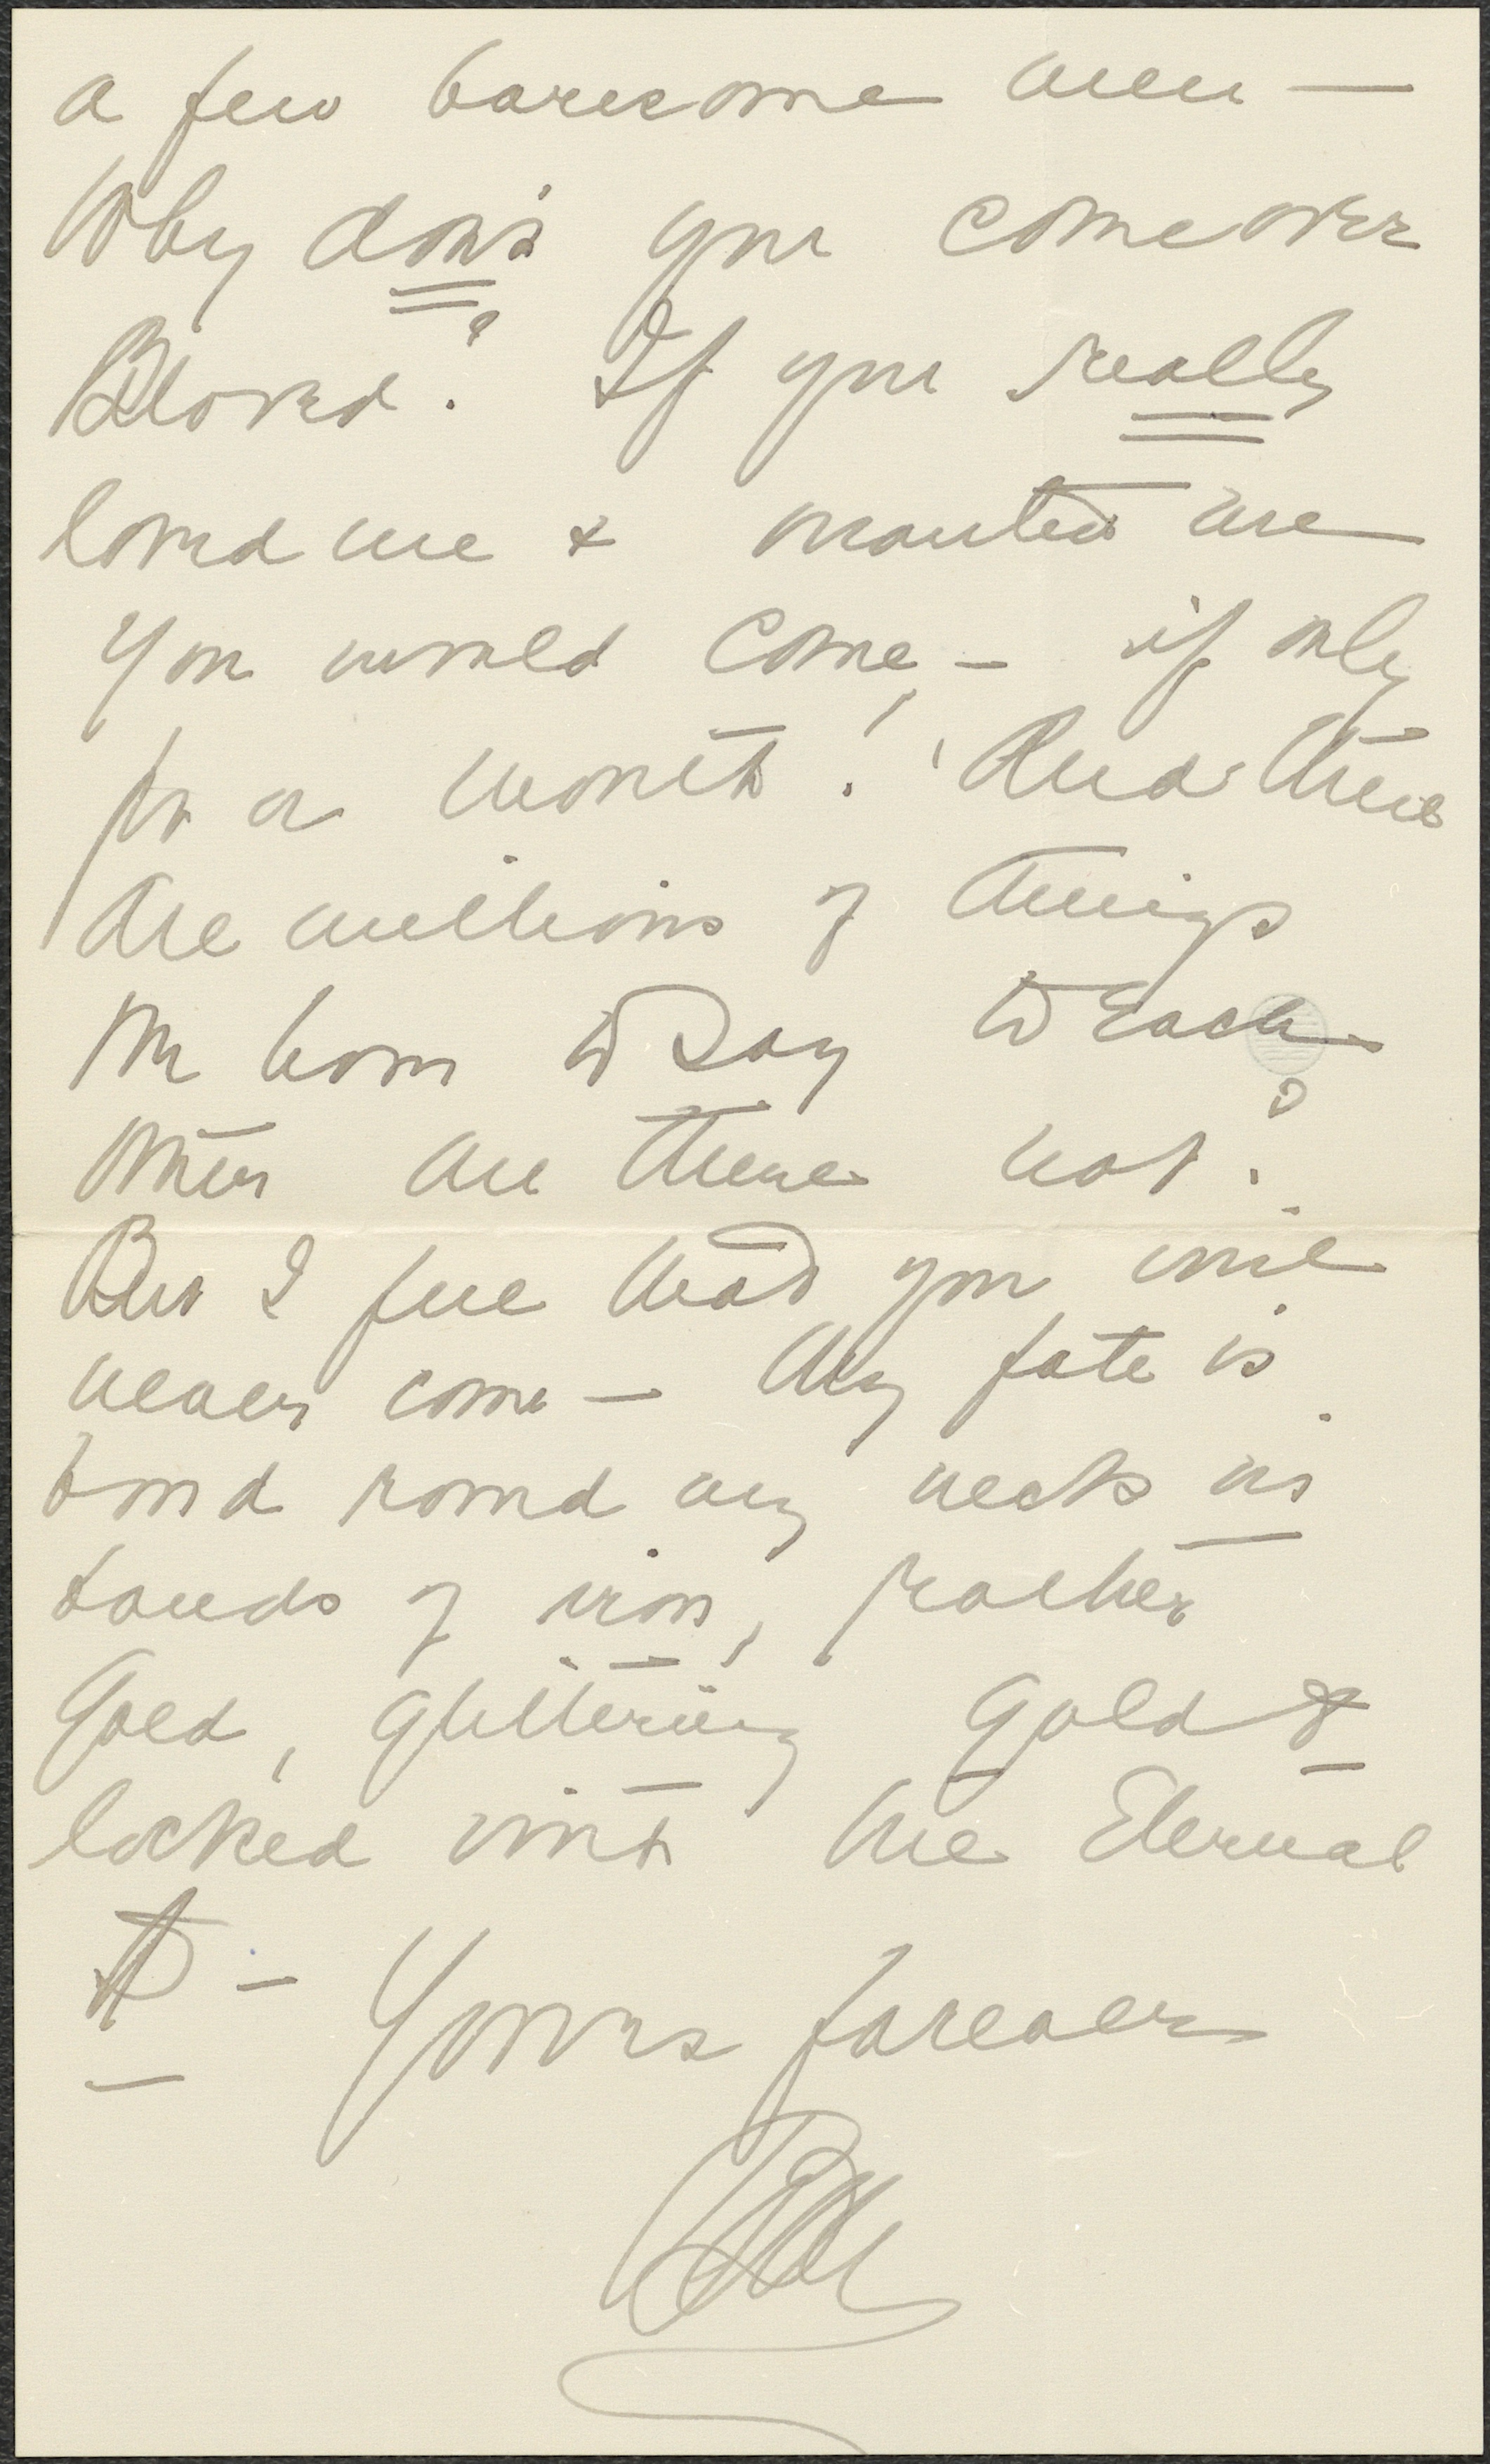 a few boresome men —
Why don't you come over
Beloved? If you really
loved me & wanted me
you would come, — if only
for a month! And there
are millions of things
to say to each
other are there not?
But I feel that you will
never come — My fate is
bound round my neck in
bands of iron, rather
Gold, glittering gold &
locked with the Eternal
— Yours forever